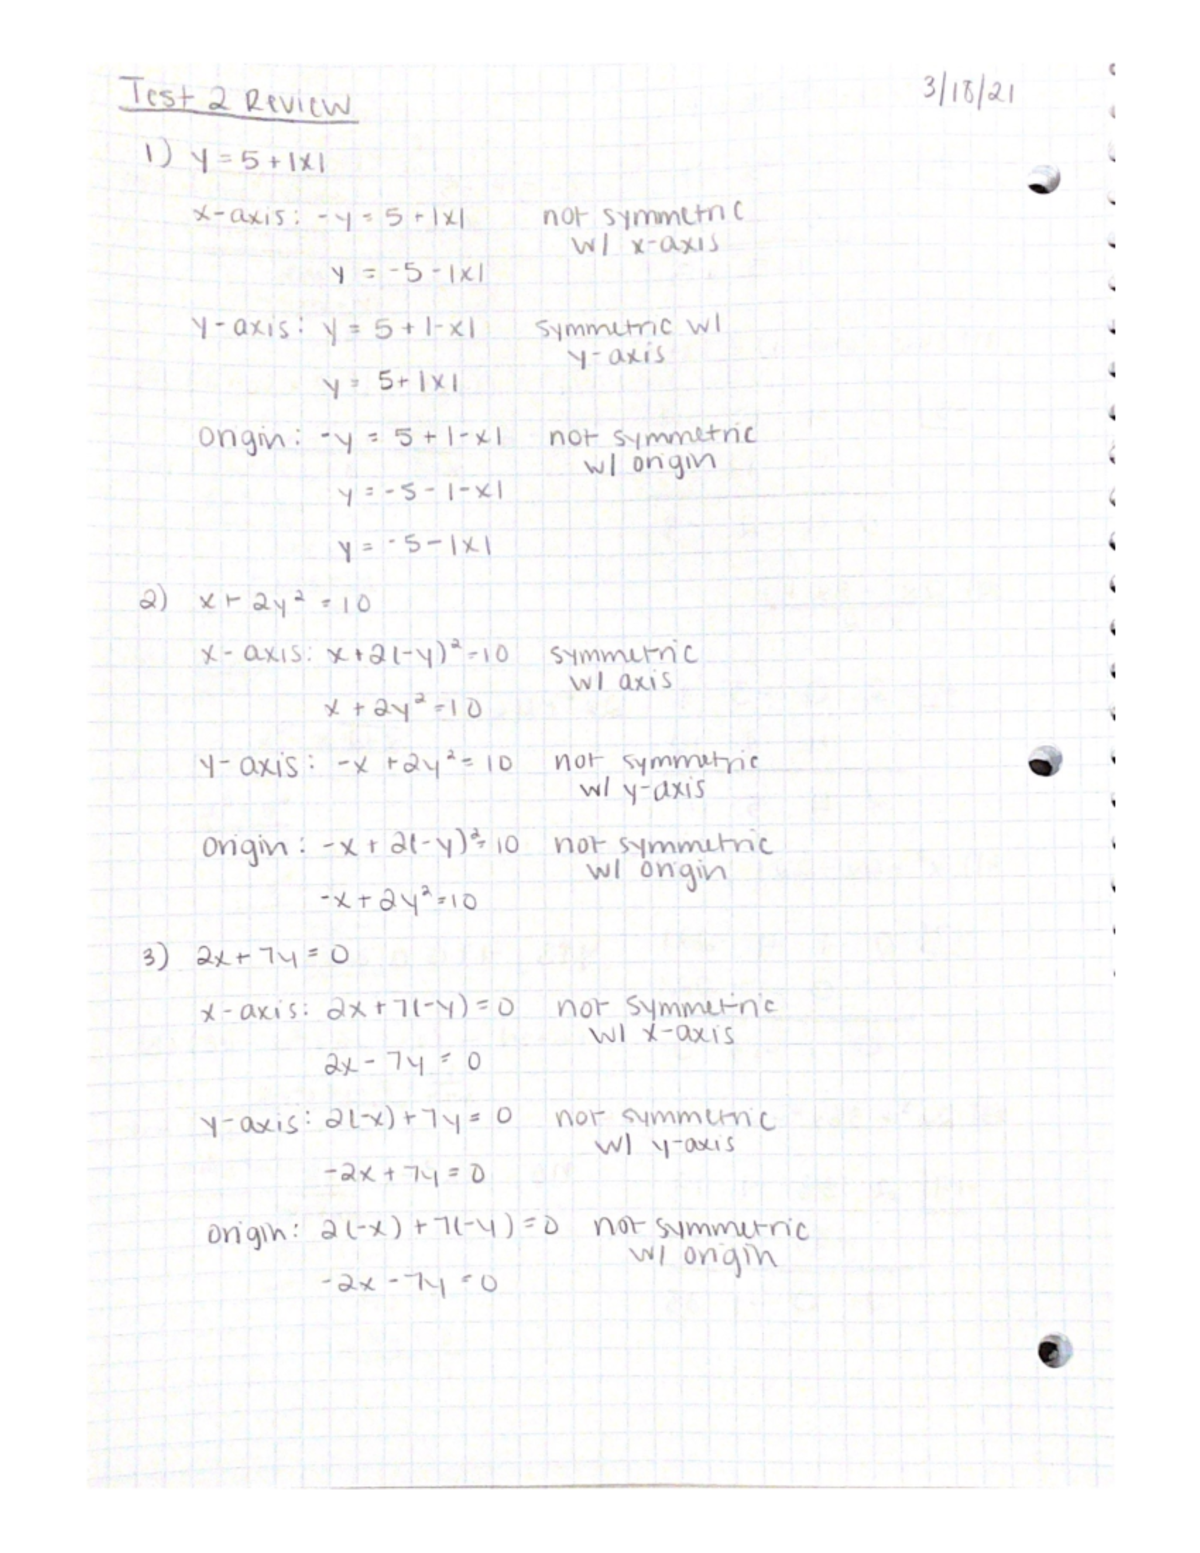 Test 2 Review 3/18/21
1) y = 5 + |x|
x-axis: -y = 5 + |x| not symmetric
w/ x-axis
y = -5 - |x|
y-axis: y = 5 + |-x| symmetric w/
y-axis
y = 5 + |x|
origin: -y = 5 + |-x| not symmetric
w/ origin
y = -5 - |-x|
y = -5 - |x|
2) x + 2y² = 10
x-axis: x + 2(-y)² = 10 symmetric
w/ axis
x + 2y² = 10
y-axis: -x + 2y² = 10 not symmetric
w/ y-axis
origin: -x + 2(-y)² = 10 not symmetric
w/ origin
-x + 2y² = 10
3) 2x + 7y = 0
x-axis: 2x + 7(-y) = 0 not symmetric
w/ x-axis
2x - 7y = 0
y-axis: 2(-x) + 7y = 0 not symmetric
w/ y-axis
-2x + 7y = 0
origin: 2(-x) + 7(-y) = 0 not symmetric
w/ origin
-2x - 7y = 0